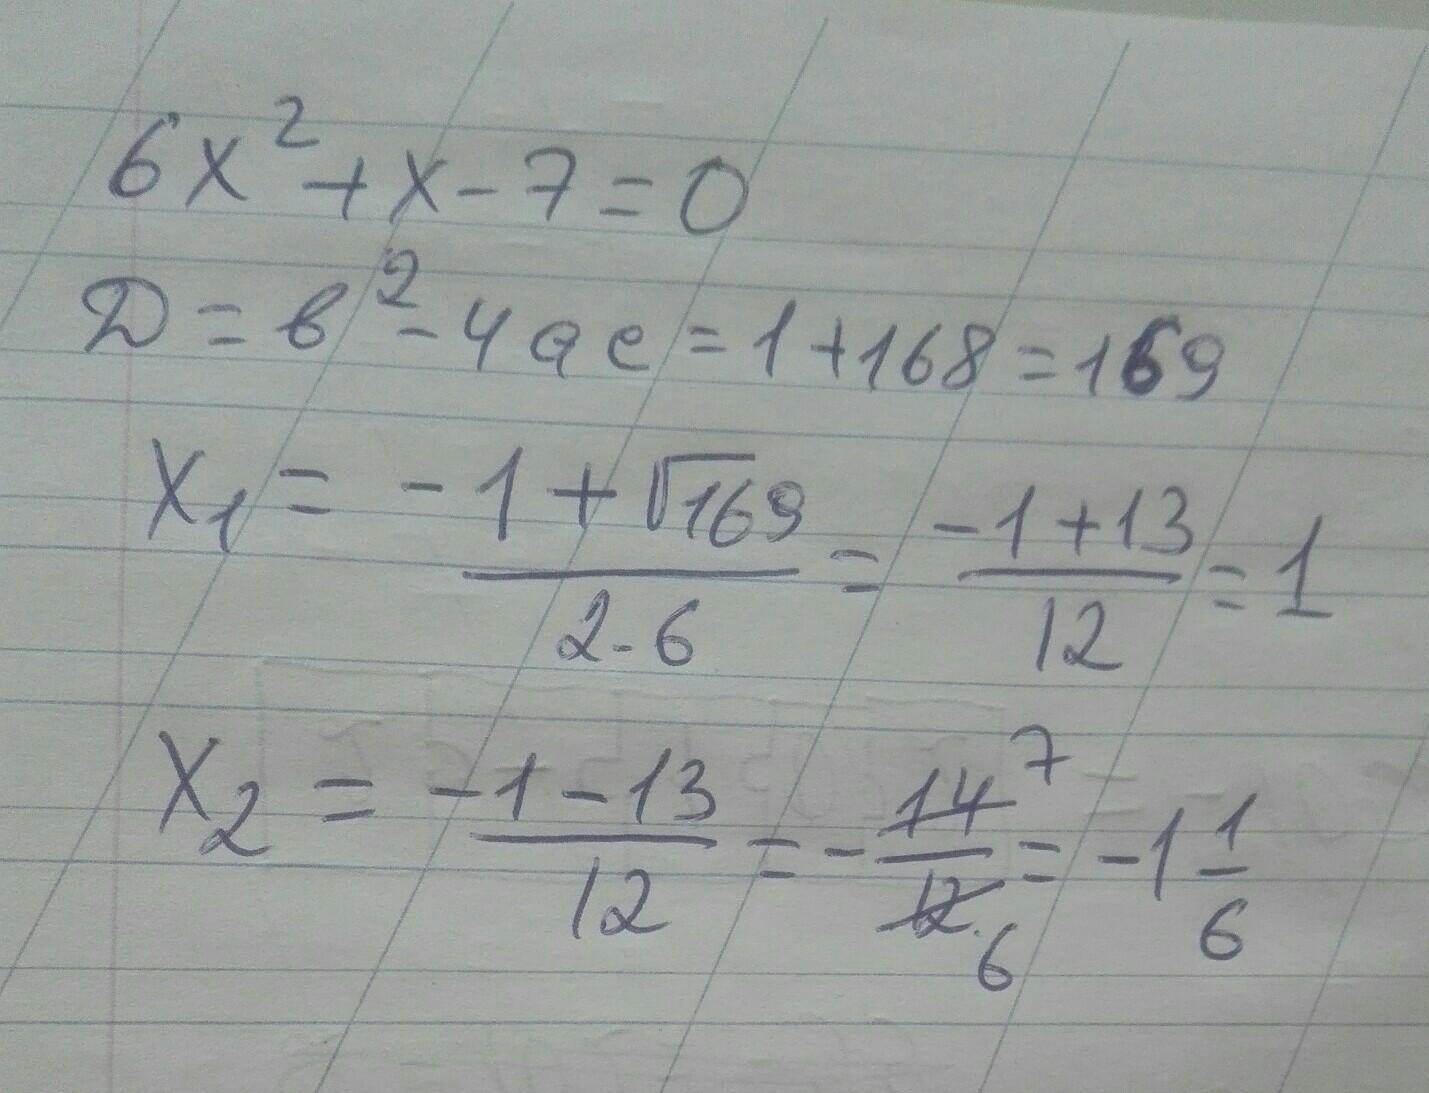 6x² + x - 7 = 0
Д = в² - 4ac = 1 + 168 = 169
x₁ = (-1 + √169)/(2·6) = (-1 + 13)/12 = 1
x₂ = (-1 - 13)/12 = -14/12 = 7/6 = -1 1/6